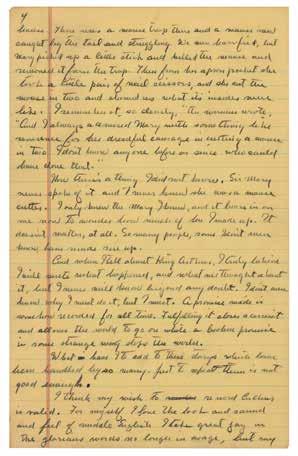 4
leaves. There was a mouse trap there and a mouse was
caught by the tail and struggling. We were horrified, but
Mary picked up a little stick and killed the mouse and
removed it from the trap. Then from her apron pocket she
took a little pair of nail scissors, and she cut the
mouse in two and showed us what its insides were
like. I remember it, so clearly," the woman wrote,
"and I always admired Mary with something like
reverence for her dreadful courage in cutting a mouse
in two. I don't know anyone before or since who could
have done that."
Now there's a thing I had not known. Sir Mary
never spoke of it and I never knew she was a mouse
cutter. I only knew the Mary I knew, and it bears in on
me now to wonder how much of her I made up. It
doesn't matter, at all. So many people, some I don't even
know, have made me up.
And when I tell about King Arthur, I truly believe
I will write what happened, and what men thought about
it, but I never will know beyond any doubt. I don't even
know why I must do it, but I must. A promise made is
somehow recorded for all time. Fulfilling it closes a circuit
and allows the world to go on while a broken promise
in some strange way stops the world.
What have I to add to these things which have
been handled by so many. Just to repeat them is not
good enough.
I think my wish to reword Arthur
is valid. For myself I love the look and sound
and feel of middle English. I take great joy in
the glorious words no longer in usage, but my